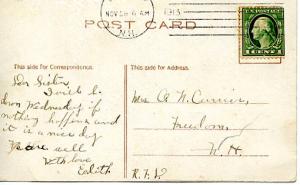 NOV 28 6 AM
1913
N.H.
POST CARD
U.S. POSTAGE
1 CENT 1
This side for Correspondence.
This side for Address.
Dear Sister
I will be
down Wednesday if
nothing happens and
it is a nice day
We are well
With love
Edith
Mrs A. W. Currier,
Freedom,
N. H.
R.F.D.